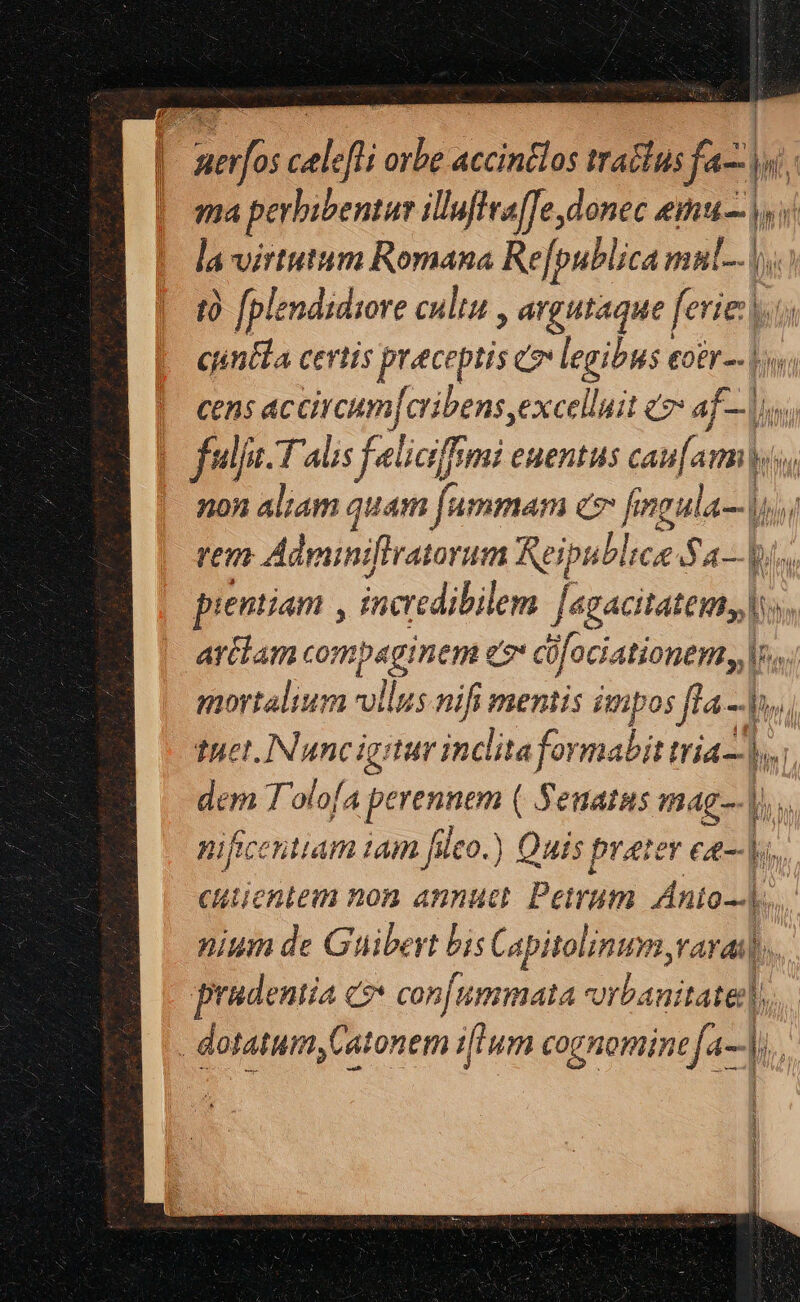 uersos cælesti orbe accinctos tractus fa-
ma perhibentur illustrasse, donec æmu-
la virtutum Romana Respublica mul-
tò splendidiore cultu, argutaque serie
cuncta certis præceptis & legibus coër-
cens ac circumscribens, excelluit & af-
fulsit. Talis fælicissimi euentus causam
non aliam quam summam & singula-
rem Administratorum Reipublicæ Sa-
pientiam, incredibilem sagacitatem,
arctam compaginem & cōsociationem,
mortalium vllus nisi mentis impos sta-
tuet. Nunc igitur inclita formabit tria-
dem Tolosa perennem ( Senatus mag-
nificentiam iam sileo.) Quis præter ea-
cutientem non annuet Petrum Anto-
nium de Guibert bis Capitolinum, rara
prudentia & consummata vrbanitate
dotatum, Catonem istum cognomine sa-